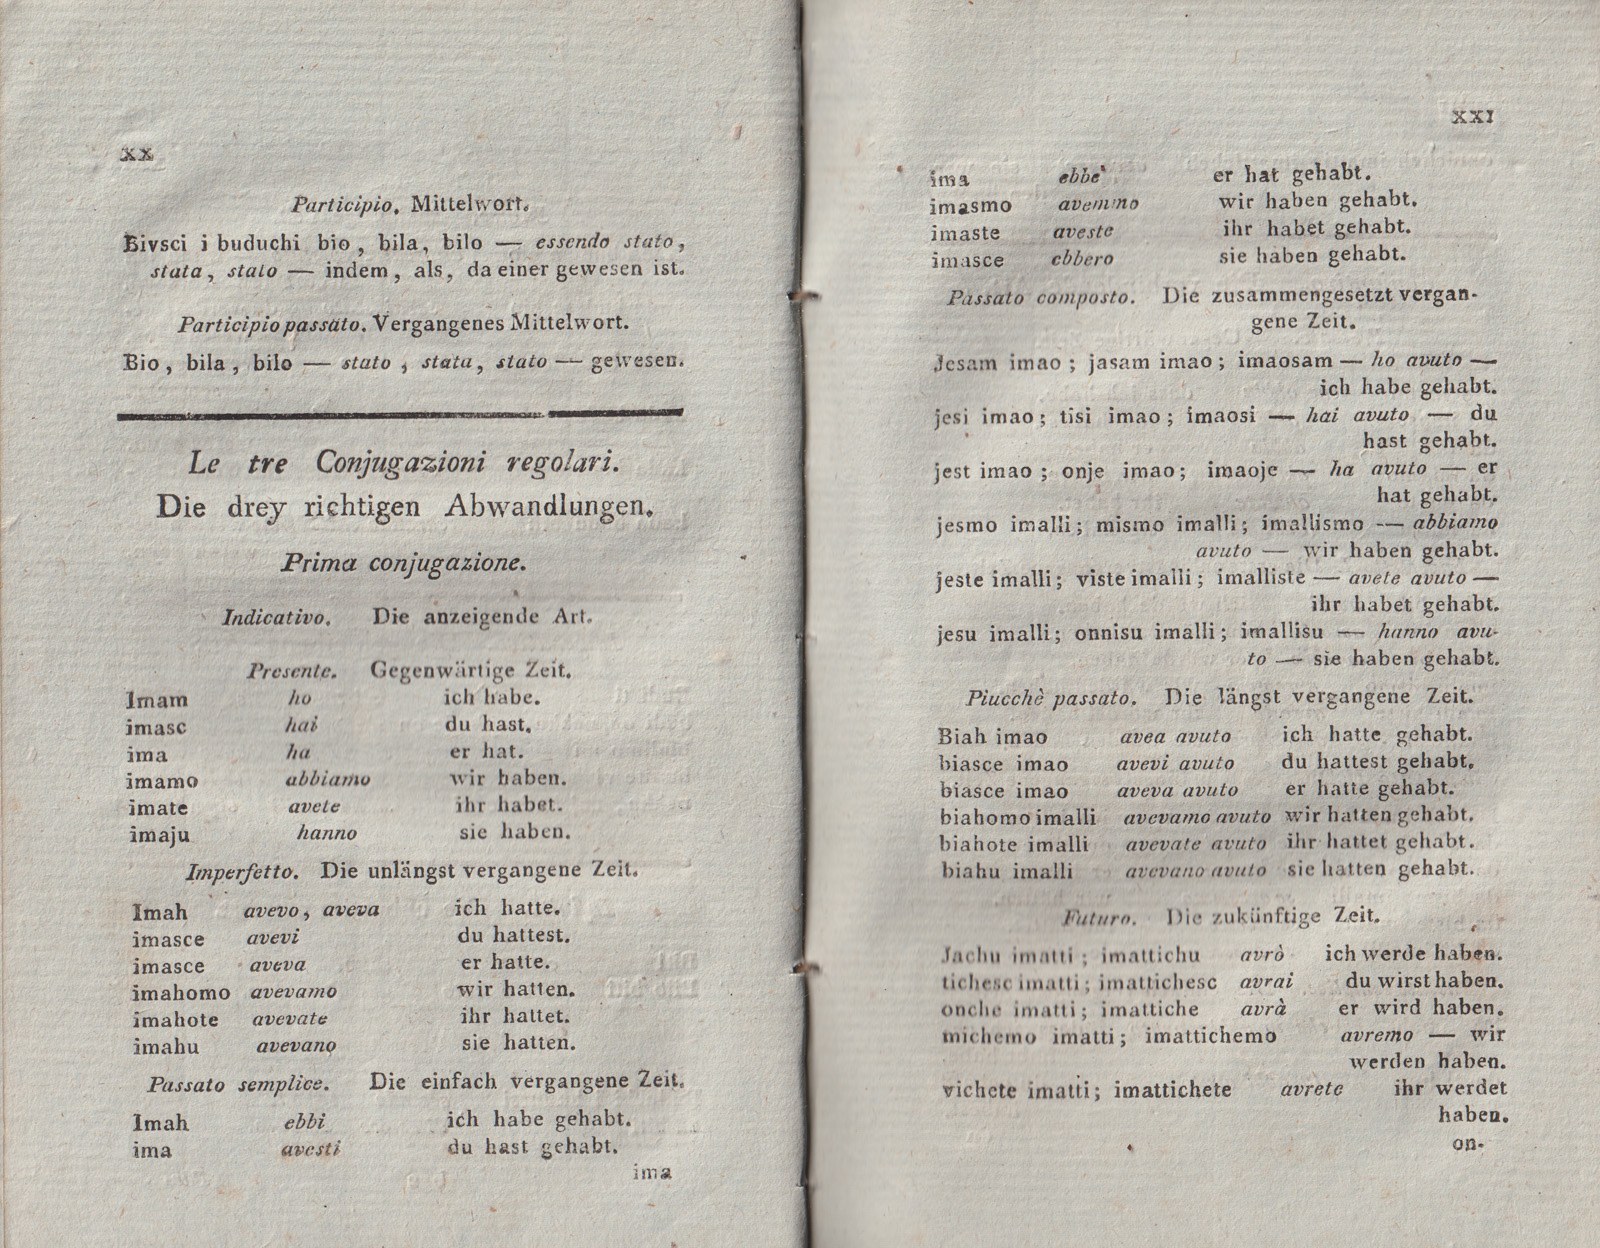 XX
Participio. Mittelwort.
Bivsci i buduchi bio, bila, bilo — essendo stato,
stata, stato — indem, als, da einer gewesen ist.
Participio passato. Vergangenes Mittelwort.
Bio, bila, bilo — stato, stata, stato — gewesen.
Le tre Conjugazioni regolari.
Die drey richtigen Abwandlungen.
Prima conjugazione.
Indicativo. Die anzeigende Art.
Presente. Gegenwärtige Zeit.
Imam ho ich habe.
imasc hai du hast.
ima ha er hat.
imamo abbiamo wir haben.
imate avete ihr habet.
imaju hanno sie haben.
Imperfetto. Die unlängst vergangene Zeit.
Imah avevo, aveva ich hatte.
imasce avevi du hattest.
imasce aveva er hatte.
imahomo avevamo wir hatten.
imahote avevate ihr hattet.
imahu avevano sie hatten.
Passato semplice. Die einfach vergangene Zeit.
Imah ebbi ich habe gehabt.
ima avesti du hast gehabt.
ima
XXI
ima ebbe er hat gehabt.
imasmo avemmo wir haben gehabt.
imaste aveste ihr habet gehabt.
imasce ebbero sie haben gehabt.
Passato composto. Die zusammengesetzt vergan-
gene Zeit.
Jesam imao; jasam imao; imaosam — ho avuto —
ich habe gehabt.
jesi imao; tisi imao; imaosi — hai avuto — du
hast gehabt.
jest imao; onje imao; imaoje — ha avuto — er
hat gehabt.
jesmo imalli; mismo imalli; imallismo — abbiamo
avuto — wir haben gehabt.
jeste imalli; viste imalli; imalliste — avete avuto —
ihr habet gehabt.
jesu imalli; onnisu imalli; imallisu — hanno avu-
to — sie haben gehabt.
Piucchè passato. Die längst vergangene Zeit.
Biah imao avea avuto ich hatte gehabt.
biasce imao avevi avuto du hattest gehabt.
biasce imao aveva avuto er hatte gehabt.
biahomo imalli avevamo avuto wir hatten gehabt.
biahote imalli avevate avuto ihr hattet gehabt.
biahu imalli avevano avuto sie hatten gehabt.
Futuro. Die zukünftige Zeit.
Jachu imatti; imattichu avrò ich werde haben.
tichesc imatti; imattichesc avrai du wirst haben.
onche imatti; imattiche avrà er wird haben.
michemo imatti; imattichemo avremo — wir
werden haben.
vichete imatti; imattichete avrete ihr werdet
haben.
on-